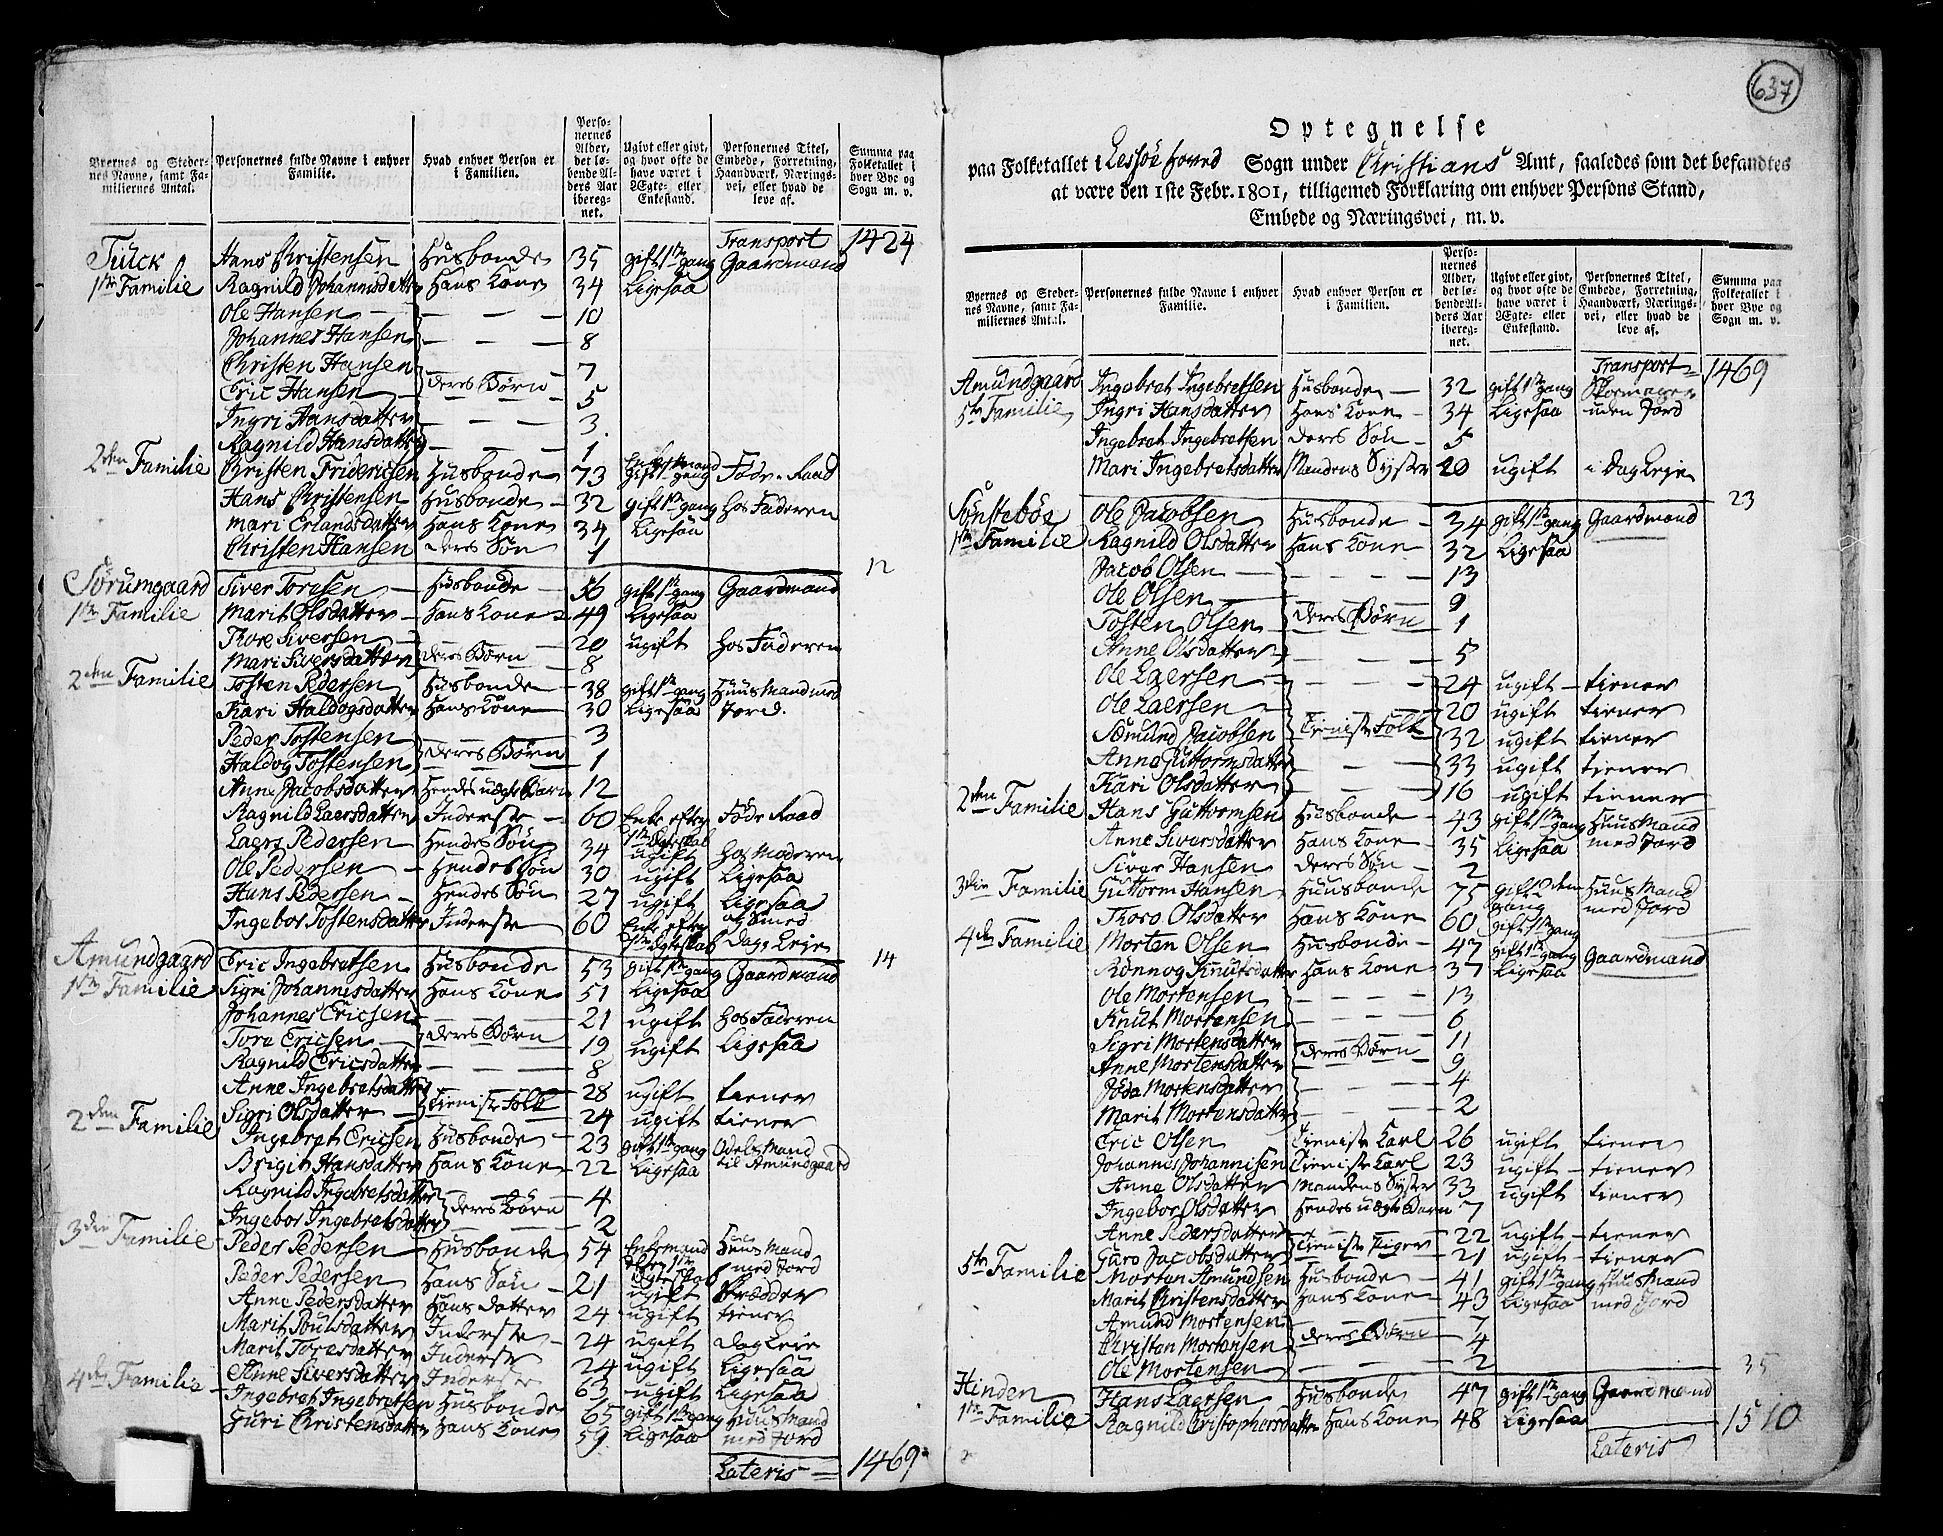 Byernes og Steder-
nes Navne, samt Fa-
miliernes Antal.
Personernes fulde Navne i enhver
Familie.
Hvad enhver Person er
i Familien.
Perso-
nernes
Alder,
det lø-
bende Al-
ders Aar
ibereg-
net.
Ugivt eller givt,
og hvor ofte de
have været i
Ægte- eller
Enkestand.
Personernes Titel,
Embede, Forretning,
Haandværk, Nærings-
vei, eller hvad de
leve af.
Summa paa
Folketallet i
hver Bye og
Sogn m. v.
Transport 1424
Tück Hans Christensen Husbonde 35 gift 1te gang Gaardmand
1te Familie Ragnild Johannisdatter Hans Kone 34 Ligesaa
Ole Hansen — — — 10
Johannes Hansen — — — 8
Christen Hansen 7
Eric Hansen deres Børn 5
Ingri Hansdatter — — — 3
Ragnild Hansdatter — — — 1
2den Familie Christen Friderichsen Husbonde 73 Enkemand gift 1te gang Føde-Raad
Hans Christensen Husbonde 32 gift 1te gang hos Faderen
Mari Erlandsdatter Hans Kone 34 Ligesaa
Christen Hansen deres Søn 1
12
Sørumgaard Siver Toresen Husbonde 56 gift 1te gang Gaardmand
1te Familie Marit Olsdatter Hans Kone 49 Ligesaa
Thore Siversen 20 ugift hos Faderen
Mari Siversdatter deres Børn 8
2den Familie Tosten Pedersen Husbonde 38 gift 1te gang Huusmand med
Kari Haldogsdatter Hans Kone 30 Ligesaa Jord.
Peder Tostensen 3
Haldog Tostensen deres Børn 1
Anne Jacobsdatter Hendes uægte Barn 12
Ragnild Laersdatter Inderste 60 Enke efter 1te Ægteskab Føde Raad
Laers Pedersen Hendes Søn 34 ugift hos Moderen
Ole Pedersen Hendes Søn 30 ugift Ligesaa
Hans Pedersen Hendes Søn 27 ugift Ligesaa og Smed
Ingebor Tostensdatter Inderste 60 Enke efter 1te Ægteskab Dags Leje
14
Amundgaard Eric Ingebretsen Husbonde 53 gift 1te gang Gaardmand
1te Familie Sigri Johannisdatter Hans Kone 51 Ligesaa
Johannes Ericsen 21 ugift hos Faderen
Tore Ericsen deres Børn 19 ugift Ligesaa
Ragnild Ericsdatter — — — 8
Anne Ingebretsdatter 28 ugift tiener
Sigri Olsdatter Tieniste Folk 24 ugift tiener
2den Familie Ingebret Ericsen Husbonde 23 gift 1te gang Odels Mand
Brigit Hansdatter Hans Kone 22 Ligesaa til Amundgaard
Ragnild Ingebretsdatter 4
Ingebor Ingebretsdatter deres Børn 2
3die Familie Peder Pedersen Husbonde 54 Enkemand efter 1te Ægteskab Huus Mand med Jord
Peder Pedersen Hans Søn 21 ugift
Anne Pedersdatter Hans datter 24 ugift tiener
Marit Poulsdatter Inderste 24 ugift dag Leje
Marit Toresdatter Inderste 24 ugift Ligesaa
Anne Siversdatter Inderste 63 ugift Ligesaa
4de Familie Ingebret Ingebretsen Husbonde 65 gift 1te gang Huus Mand
Guri Christensdatter Hans Kone 59 Ligesaa med Jord
Lateris 1469
637
Optegnelse
paa Folketallet i Lessøe hoved Sogn under Christians Amt, saaledes som det befandtes
at være den 1ste Febr. 1801, tilligemed Forklaring om enhver Persons Stand,
Embede og Næringsvei, m. v.
Byernes og Steder-
nes Navne, samt Fa-
miliernes Antal.
Personernes fulde Navne i enhver
Familie.
Hvad enhver Person er
i Familien.
Perso-
nernes
Alder,
det lø-
bende Al-
ders Aar
ibereg-
net.
Ugivt eller givt,
og hvor ofte de
have været i
Ægte- eller
Enkestand.
Personernes Titel,
Embede, Forretning,
Haandværk, Nærings-
vei, eller hvad de
leve af.
Summa paa
Folketallet i
hver Bye og
Sogn m. v.
Transport 1469
Amundgaard Ingebret Ingebretsen Husbonde 32 gift 1te gang Skoemager
5te Familie Ingri Hansdatter Hans Kone 34 Ligesaa uden Jord
Ingebret Ingebretsen deres Søn 5
Mari Ingebretsdatter Mandens Syster 20 ugift i Dag Leje
23
Sønstebøe Ole Jacobsen Husbonde 34 gift 1te gang Gaardmand
1te Familie Ragnild Olsdatter Hans Kone 32 Ligesaa
Jacob Olsen — — — 13
Ole Olsen — — — 9
Tosten Olsen deres Børn 1
Anne Olsdatter — — — 5
Ole Laersen — — — 24 ugift tiener
Ole Laersen 20 ugift tiener
Sømund Jacobsen Tieniste Folk 32 ugift tiener
Anne Guttormsdatter — — — 33 ugift tiener
Kari Olsdatter — — — 16 ugift tiener
2den Familie Hans Guttormsen Husbonde 43 gift 1te gang Huus Mand
Anne Siversdatter Hans Kone 35 Ligesaa med Jord
Siver Hansen deres Søn 2
3die Familie Guttorm Hansen Huusbonde 75 gift 2den gang Huus Mand
Thoro Olsdatter Hans Kone 60 gift 1te gang med Jord
4de Familie Morten Olsen Husbonde 47 gift 1te gang Gaardmand
Rønnog Knutsdatter Hans Kone 37 Ligesaa
Ole Mortensen — — — 13
Knut Mortensen — — — 6
Sigri Mortensdatter 11
Anne Mortensdatter deres Børn 9
Jøda Mortensdatter — — — 4
Marit Mortensdatter — — — 2
Eric Olsen Tieniste Karl 26 ugift tiener
Johannis Johannisen Tieniste Karl 23 ugift tiener
Anne Olsdatter Mandens Syster 33 ugift tiener
Ingebor Olsdatter Hendes uægte Barn 7
Anne Pedersdatter 22 ugift tiener
Guro Jacobsdatter Tieniste Piger 21 ugift tiener
5te Familie Morten Amundsen Husbonde 41 gift 1te gang Huus Mand
Marit Christensdatter Hans Kone 43 Ligesaa med Jord
Amund Mortensen 7
Christen Mortensen deres Børn 4
Ole Mortensen — — — 2
35
Hinden Hans Laersen Husbonde 47 gift 1te gang Gaardmand
1te Familie Ragnild Christophersdatter Hans Kone 48 Ligesaa
Lateris 1510